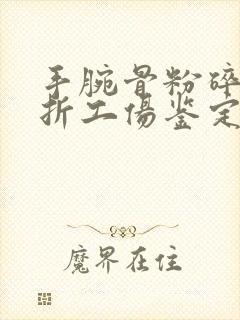 手腕骨粉碎
折工伤鉴定
魔界在住